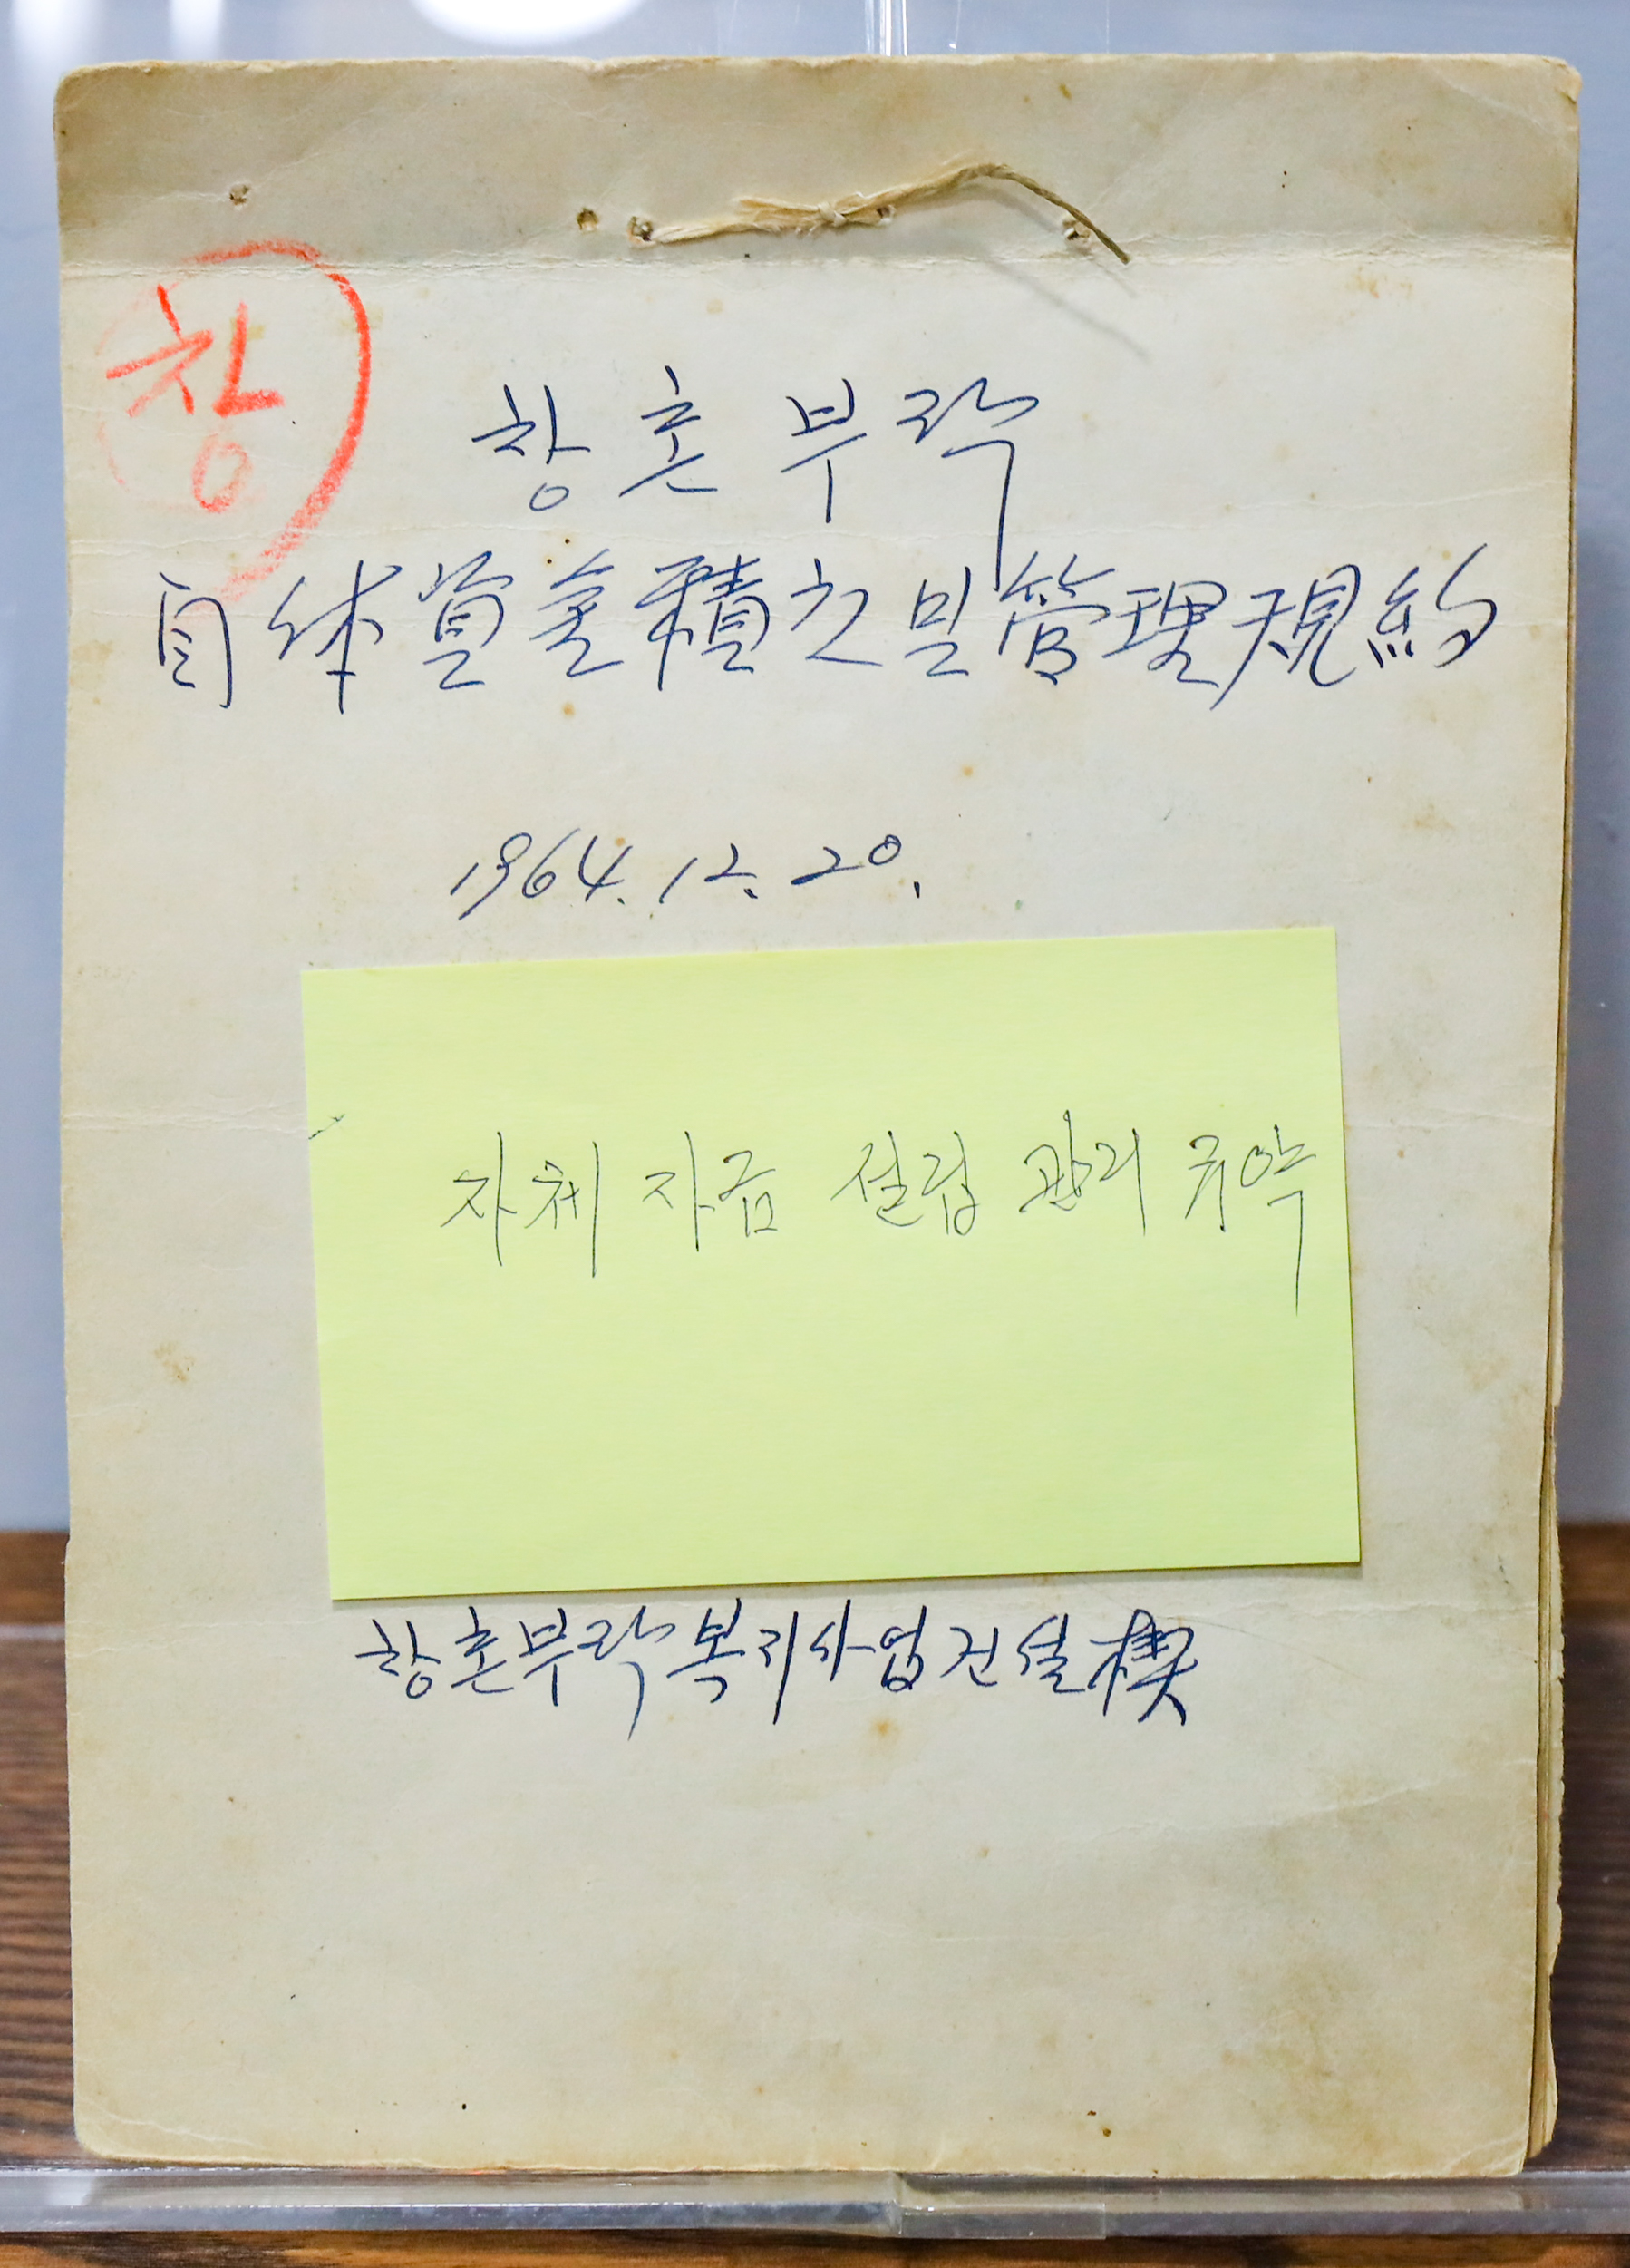 창
창촌부락
自体資金積立및管理規約
1964.12.20.
자체 자금 설립 관리 규약
창촌부락복지사업건설楔